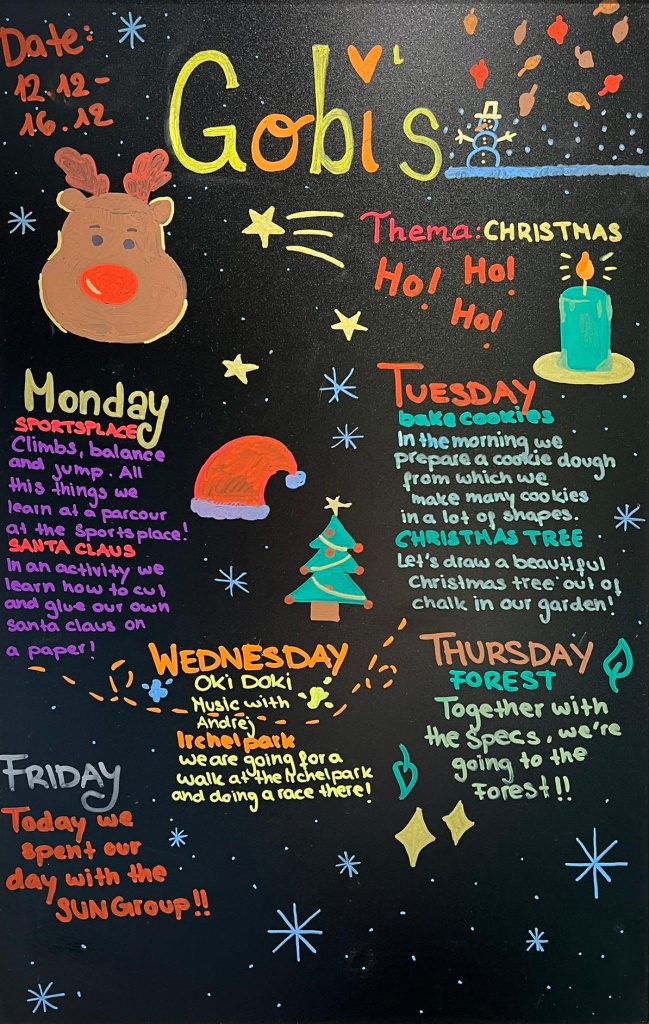 Date:
12.12-
16.12
Gobi's
Thema: CHRISTMAS
Ho! Ho!
Ho!
Monday
SPORTSPLACE
Climbs, balance
and jump. All
this things we
learn at a parcour
at the Sportsplace!
SANTA CLAUS
In an activity we
learn how to cut
and glue our own
Santa claus on
a paper!
TUESDAY
bake cookies
In the morning we
prepare a cookie dough
from which we
make many cookies
in a lot of shapes.
CHRISTMAS TREE
Let's draw a beautiful
Christmas tree out of
chalk in our garden!
WEDNESDAY
OKI DOKI
Music with
Andrej
Irchelpark
we are going for a
walk at the Irchelpark
and doing a race there!
THURSDAY
FOREST
Together with
the Specs, we're
going to the
Forest!!
FRIDAY
Today we
spent our
day with the
SUN Group!!